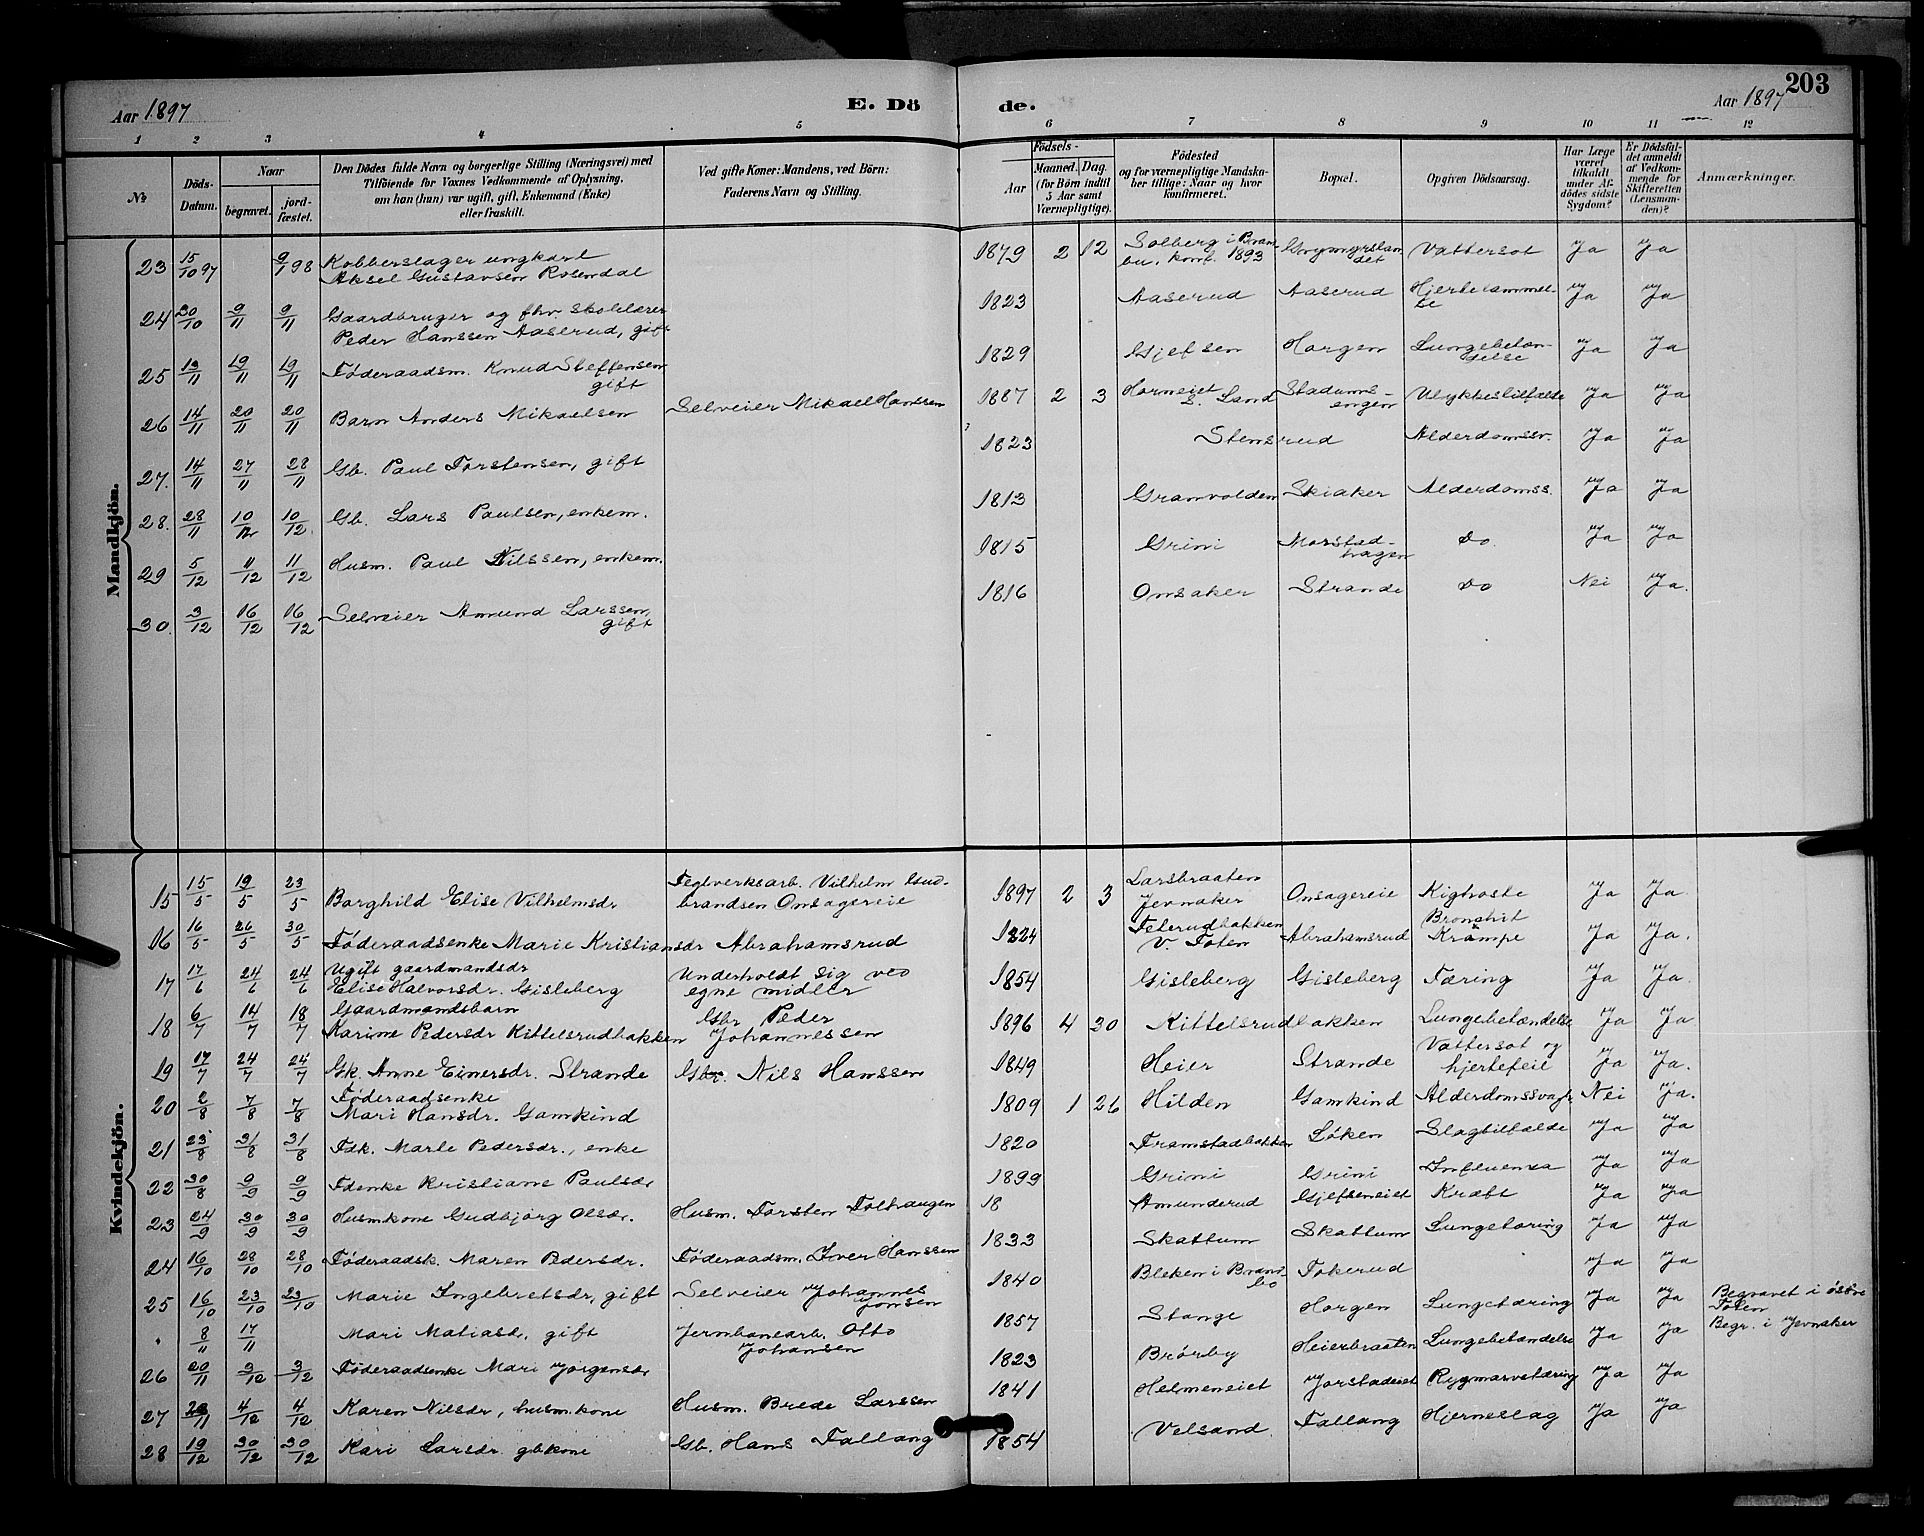 Aar 1897
E. Dö
de.
Aar 1897
203
1 2 3 4 5 6 7 8 9 10 11 12
№
Döds-Datum.
Naar
begravet.
jord-fæstet.
Den Dödes fulde Navn og borgerlige Stilling (Næringsvei) med
Tilföiende for Voxnes Vedkommende af Oplysning,
om han (hun) var ugift, gift, Enkemand (Enke)
eller fraskilt.
Ved gifte Koner: Mandens, ved Börn:
Faderens Navn og Stilling.
Födsels-
Aar
Maaned. Dag.
(for Börn indtil
5 Aar samt
Værnepligtige).
Födested
og for værnepligtige Mandska-
ber tillige: Naar og hvor
konfirmeret.
Bopæl.
Opgiven Dödsaarsag.
Har Læge
været
tilkaldt
under Af-
dödes sidste
Sygdom?
Er Dödsfal-
det anmeldt
af Vedkom-
mende for
Skifteretten
(Lensman-
den)?
Anmærkninger.
Mandkjön.
23 15/10 97 9/1 98 Kobberslager ungkarl
Aksel Gustavsen Rosendal
1879 2 12 Solberg i Bran-
bu, konf. 1893 Vattersot Ja Ja
24 30/10 9/11 9/11 Gaardbruger og fhv. skolelærer
Peder Hanssen Aaserud, gift
1823 Aaserud Aaserud Hjertelammel-
se Ja Ja
25 13/11 19/11 19/11 Föderaadsm. Knud Steffensen
gift
1829 Gjefsen Horgen Lungebetæn-
delse Ja Ja
26 14/11 20/11 20/11 Barn Anders Mikaelsen Selveier Mikael Hanssen
1887 2 3 Horneiet
S. Land Stadums-
engen Ulykkestilfælde Ja Ja
27. 14/11 27/11 28/11 Gb. Paul Torstensen, gift
1823 Stensrud Alderdomssv. Ja Ja
28. 28/11 10/12 10/12 Gb. Lars Paulsen, enkem.
1813 Granvolden Skiaker Alderdomss. Ja Ja
29 5/12 11/12 11/12 Husm. Paul Nilssen, enkem.
1815 Grini Morstad-
hagen Do. Ja Ja
30. 3/12 16/12 16/12 Selveier Amund Larssen,
gift
1816 Onsaker Strande Do Nei Ja.
Kvindekjön.
15 15/5 19/5 23/5 Borghild Elise Vilhelmsdr Teglverksarb. Vilhelm Gud-
brandsen Onsagereie
1897 2 3 Larsbraaten
Jevnaker Onsagereie Kighoste Ja Ja.
16 16/5 26/5 30/5 Föderaadsenke Marie Kristiansdr Abrahamsrud
1824 Feterudbakken
V. Toten Abrahamsrud Bronchit
Krampe Ja Ja.
17 17/6 24/6 24/6 Ugift gaardmandsdr
Elise Halvorsdr. Gisleberg Underholdt sig ved
egne midler
1854 Gisleberg Gisleberg Tæring Ja Ja.
18 6/7 14/7 18/7 Gaardmandsbarn
Karine Pedersdr Kittelsrudbakken Gbr Peder
Johannessen
1896 4 30 Kittelsrudbakken Lungebetændelse Ja Ja
19 17/7 24/7 24/7 Gk. Anne Einersdr. Strande Gbr. Nils Hanssen
1849 Heier Strande Vattersot og
hjertefeil Ja Ja.
20 2/8 7/8 7/8 Föderaadsenke
Mari Hansdr. Gamkind
1809 1 26 Hilden Gamkind Nei Ja.
21 23/8 31/8 31/8 Fdk. Marte Pedersdr., enke
1820 Framstadbakken Löken Slagtilfælde Ja Ja
22 30/8 9/9 9/9 Fdenke Kristiane Paulsdr
1899 Grini Grini Influensa Ja Ja
23 24/9 30/9 30/9 Husmkone Gudbjörg Olsdr. Husm. Torsten Tolthaugen
18 Amunderud Gjefseneiet Kræbt Ja Ja
24 16/10 28/10 28/10 Föderaadsk. Maren Pedersdr. Föderaadsm. Iver Hanssen
1833 Skattum Skattum Lungetæring Ja Ja
25 16/10 23/10 23/10 Marie Ingebretsdr, gift Selveier Johannes
Jonsen
1840 Bleken i Brand-
bo Tokerud Ja Ja
Begravet i östre
Toten
" 8/11 17/11 Mari Matiasd., gift Jernbanearb. Otto
Johansen
1857 Stange Horgen Lungetæring Ja Ja Begr. i Jevnaker
26 20/11 3/12 3/12 Föderaadsenke Mari Jörgensdr
1823 Brörby Heierbraaten Lungebetændelse Ja Ja
27 4/12 4/12 Karen Nilsdr, husm.kone Husm. Brede Larssen
1841 Helmeneiet Jorstadeiet Rygmarvstæring Ja Ja
28 19/12 30/12 30/12 Kari Larsdr. gbkone Gb. Hans Fallang
1854 Velsand Fallang Hjerneslag Ja Ja